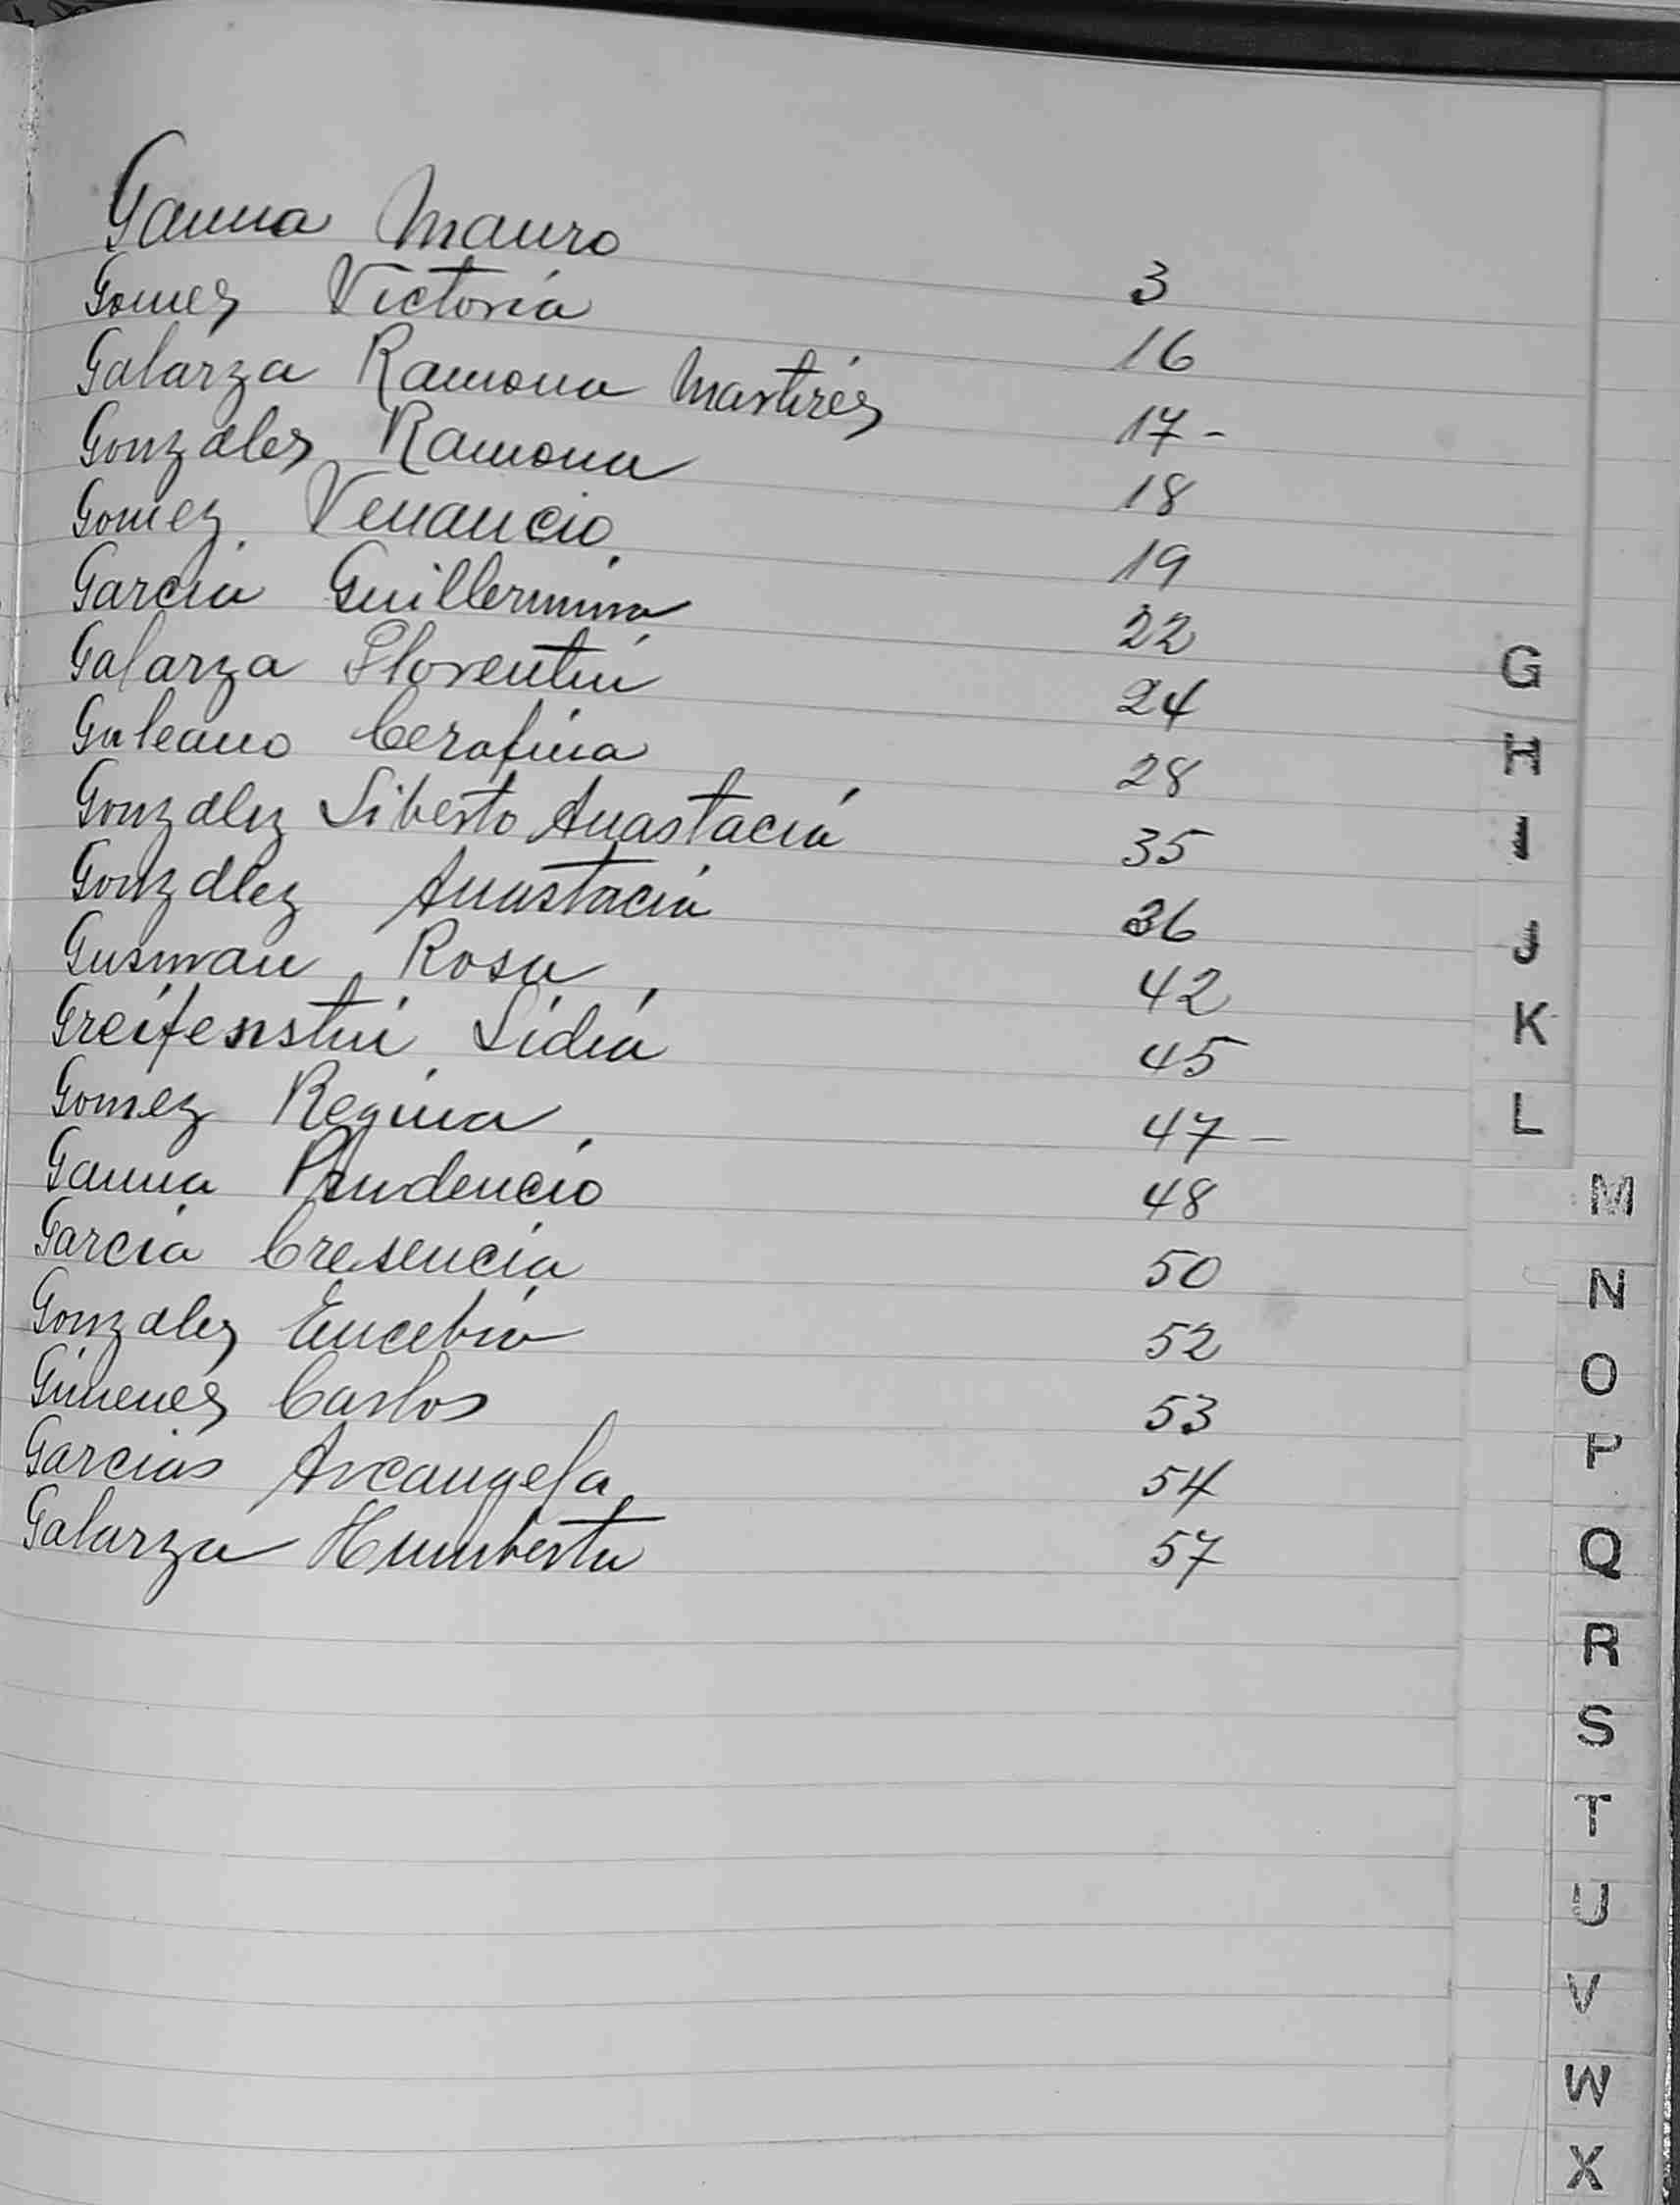 Gauna Mauro 3
Gomez Victoria 16
Galarza Ramona Martirez 17 -
Gonzalez Ramona 18
Gomez Venancio 19
Garcia Guillermina 22
Galarza Florentin 24
Galeano Cerafina 28
Gonzalez Liberto Anastacia 35
Gonzalez Anastacia 36
Gusman Rosa 42
Greifenstin Lidia 45
Gomez Regina 47 -
Gauna Prudencio 48
Garcia Cresencia 50
Gonzalez Eucebia 52
Gimenez Carlos 53
Garcias Arcangela 54
Galarza Humberta 57
G
H
I
J
K
L
M
N
O
P
Q
R
S
T
U
V
W
X